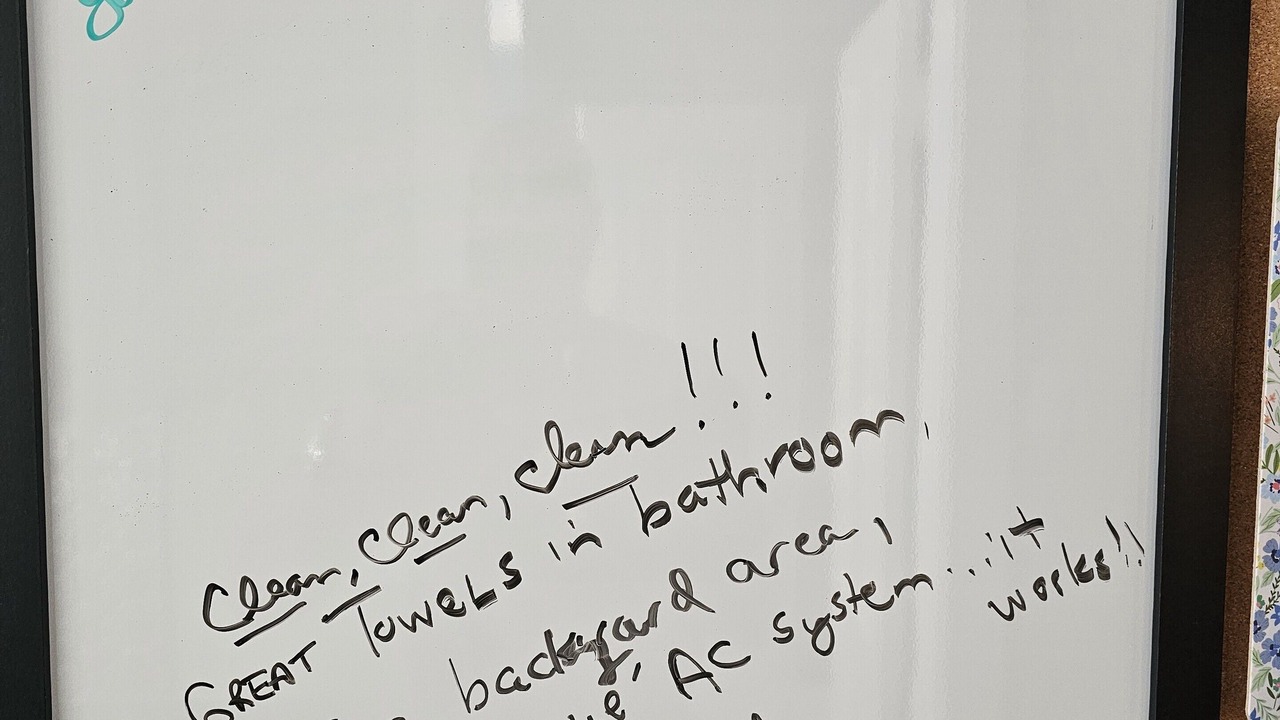 Clean, Clean, Clean!!!
GREAT Towels in bathroom,
backyard area,
AC system...it
works!!